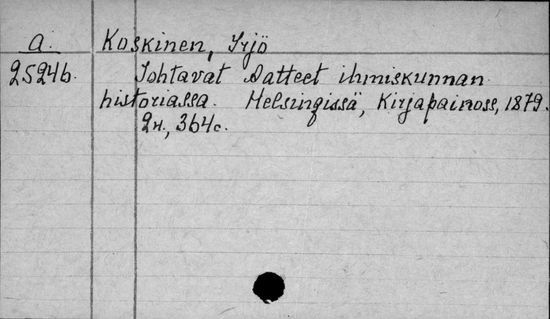 a. Koskinen, Irjö
2524b. Johtavat Aatteet ihmiskunnan
historiassa. Helsingissä, Kirjapainoss, 1879.
2н., 364с.